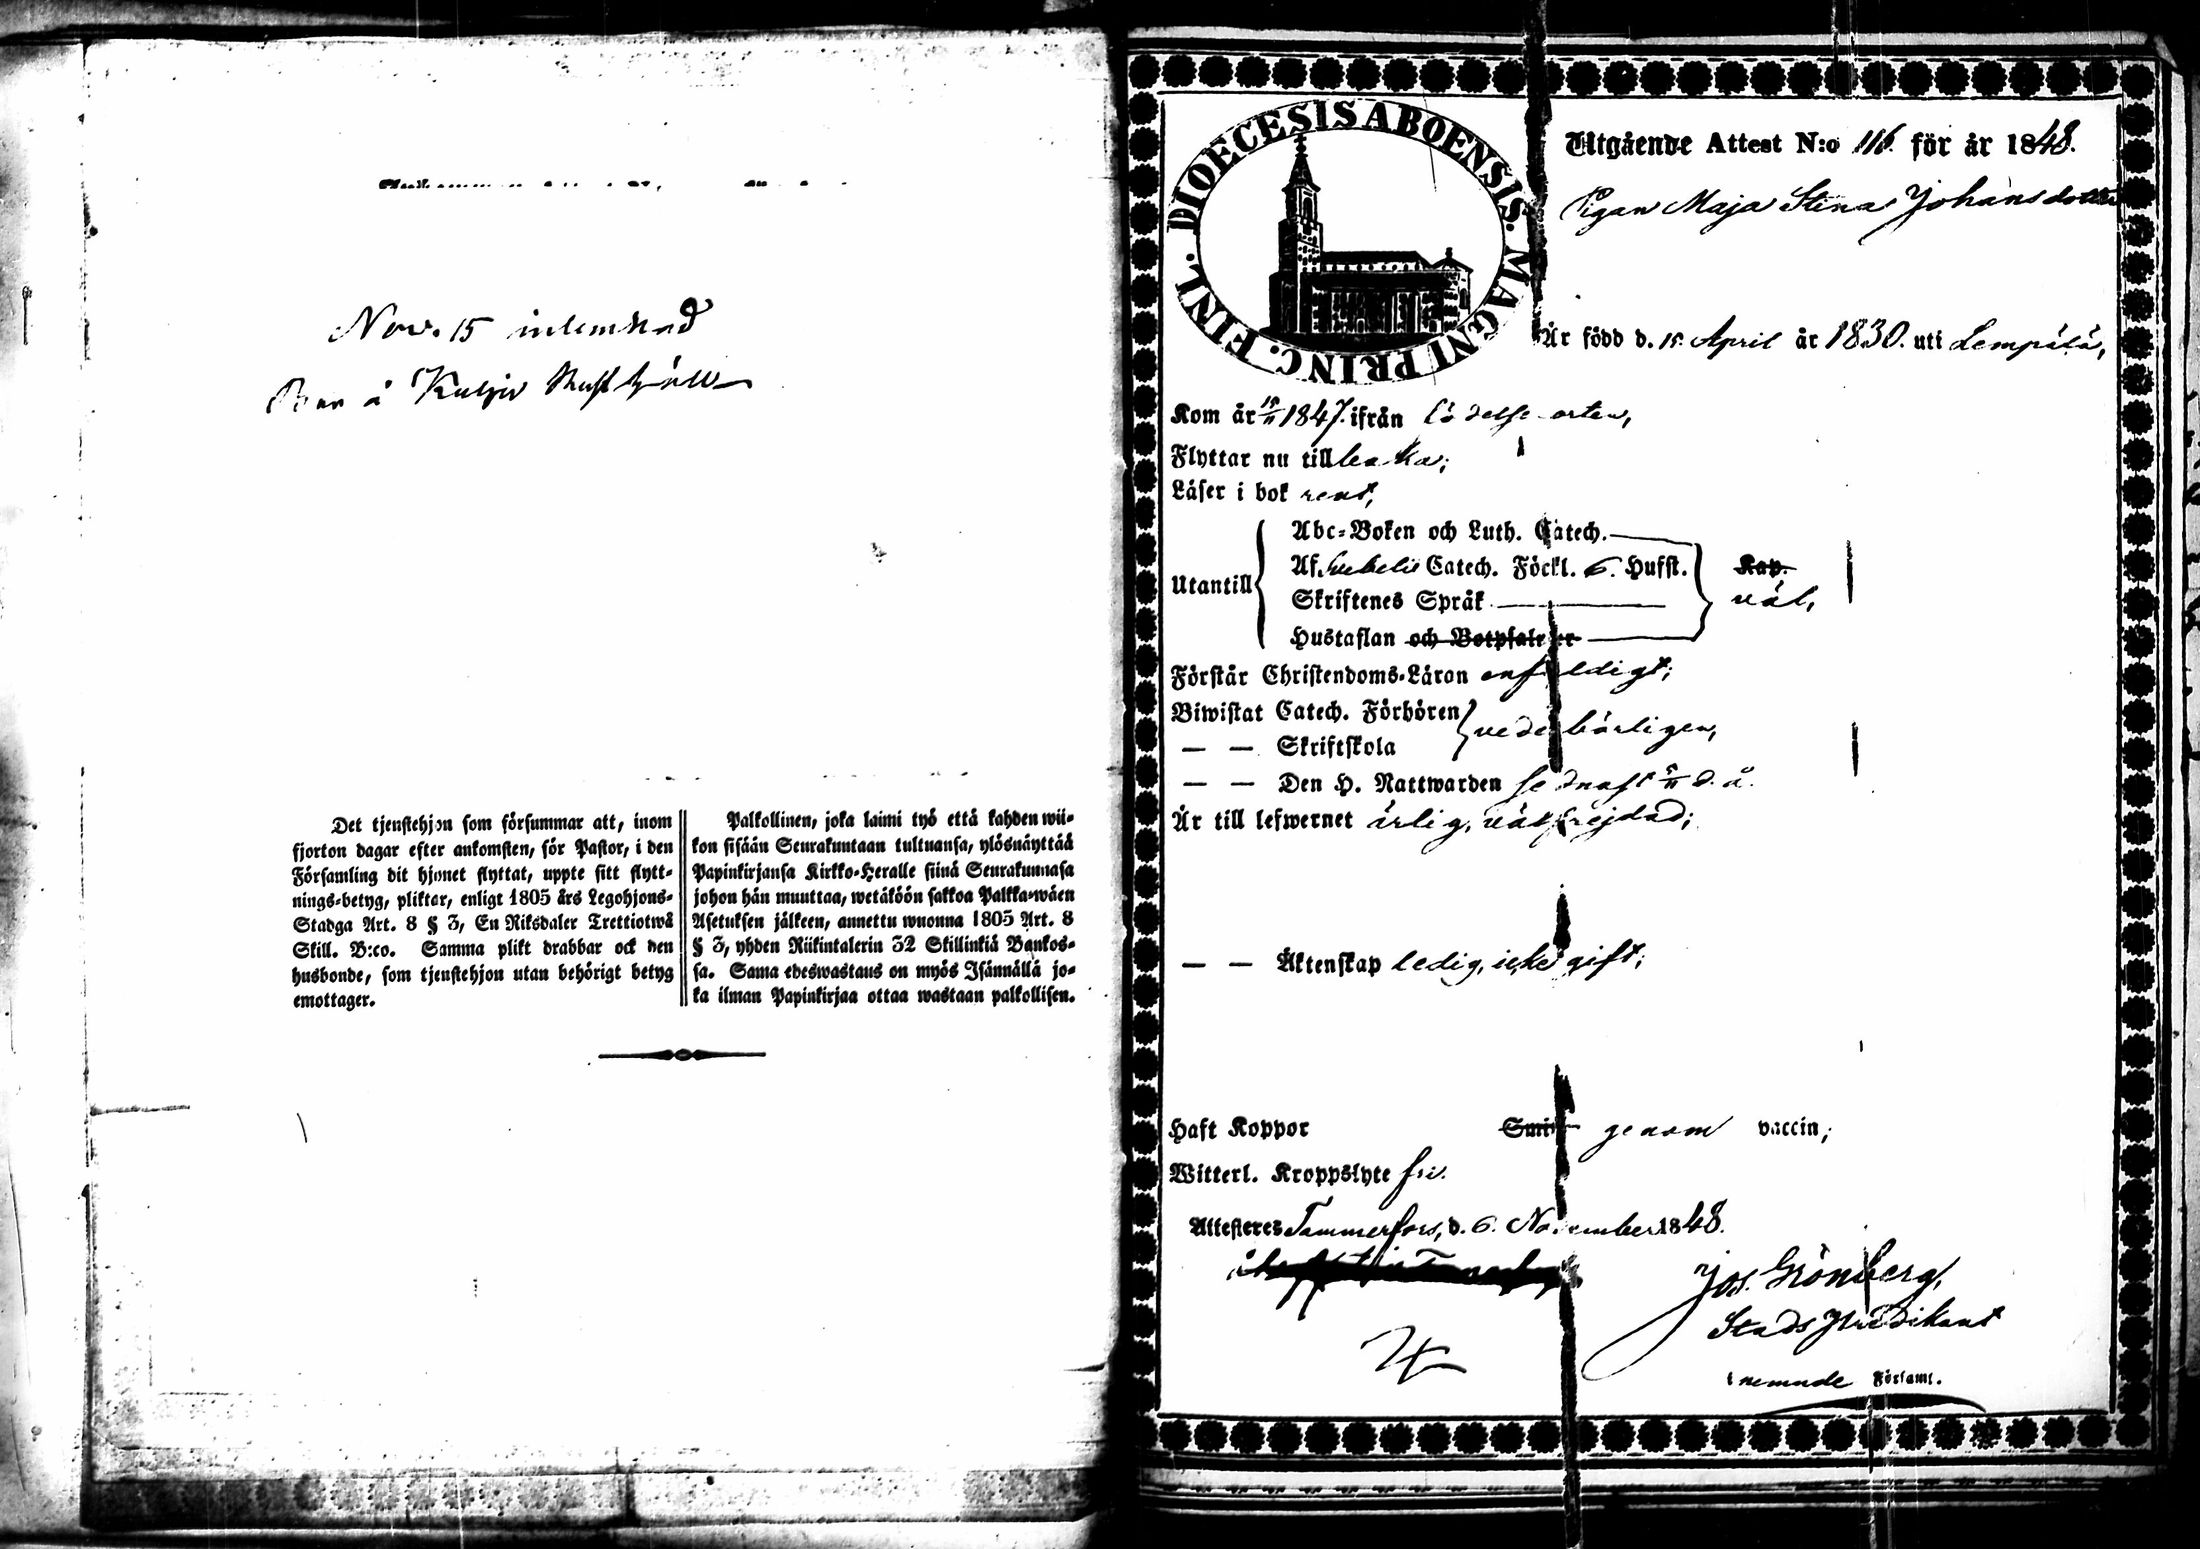 Nov. 15 inlemnad
å Kulju
Det tjenstehjon som försummar att, inom
fjorton dagar efter ankomsten, för Pastor, i den
Församling dit hjonet flyttat, uppte sitt flytt-
nings-betyg, pliktar, enligt 1805 års Legohjons-
Stadga Art. 8 § 3, En Riksdaler Trettiotwå
Skill. B:co. Samma plikt drabbar ock den
husbonde, som tjenstehjon utan behörigt betyg
emottager.
Palkollinen, joka laimi työ että kahden wii-
kon sisään Seurakuntaan tultuansa, ylösnäyttää
Papinkirjansa Kirkko-Heralle siinä Seurakunnasa
johon hän muuttaa, wetäköön sakkoa Palkka-wäen
Asetuksen jälkeen, annettu wuonna 1805 Art. 8
§ 3, yhden Riikintalerin 32 Skillinkiä Bankos-
sa. Sama edeswastaus on myös Isännällä jo-
ka ilman Papinkirjaa ottaa wastaan palkollisen.
DIOECESIS ABOENSIS. MAGNI PRINC. FINL.
Utgående Attest N:o 116. för år 1848.
Pigan Maja Stina Johansdotter
Är född d. 15. April år 1830. uti Lempälä,
Kom år 15/11 1847. ifrån födelse orten,
Flyttar nu till
Läser i bok rent,
Utantill
Abc-Boken och Luth. Catech.
Af Svebelii Catech. Föckl. 6. Hufst. Kap.
väl,
Skriftenes Språk
Hustaflan och Botpsalmer
Förstår Christendoms-Läran enfaldigt;
Biwistat Catech. Förhören
vederbörligen,
— — Skriftskola
— — Den H. Nattwarden sednast 5/11 d. å.
Är till lefwernet ärlig, välfrejdad;
— — Äktenskap ledig, icke gift;
Haft Koppor Smitt genom vaccin;
Witterl. Kroppslyte fri.
Attesteres Tammerfors, d. 6. November 1848.
Jos. Grönberg,
Stads Predikant
i nemnde Församl.